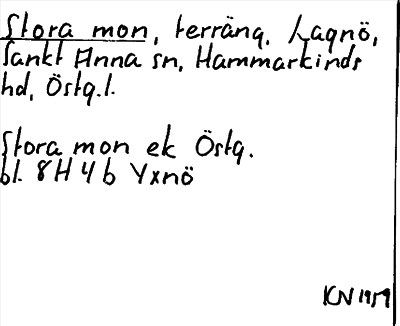 Stora mon, terräng, Lagnö,
Sankt Anna sn, Hammarkinds
hd, Östg.l.
Stora mon ek Östg.
bl. 8H 4 b Yxnö
KN 1959